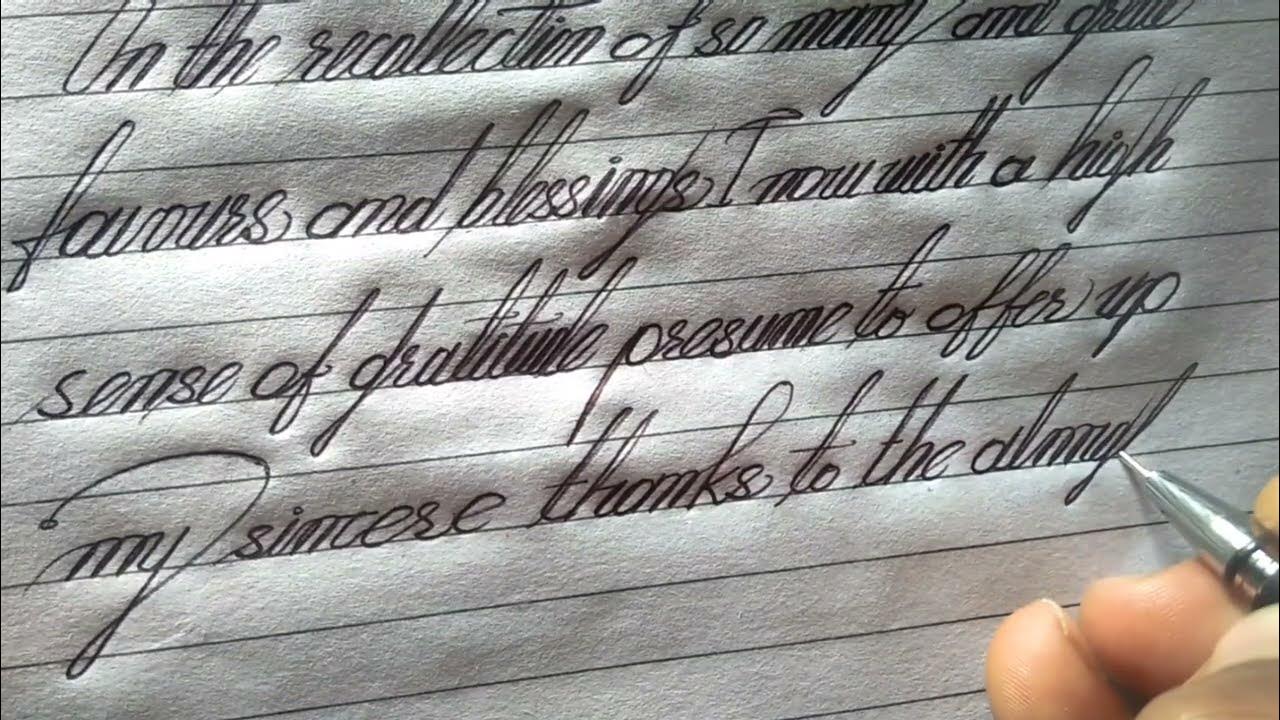 In the recollection of so many and great
favours and blessings, I now with a high
sense of gratitude presume to offer up
my sincere thanks to the almigh